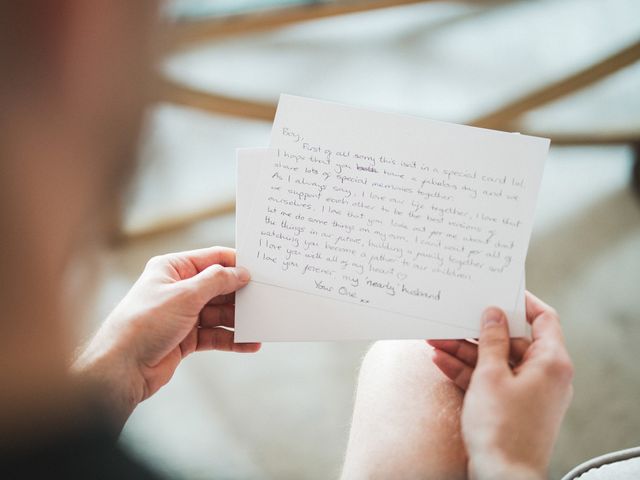 Boy,
First of all sorry this isn't in a special card lol.
I hope that you have a fabulous day and we
share lots of special memories together.
As I always say, I love our life together, I love that
we support each other to be the best versions of
ourselves. I love that you look out for me about that
let me do some things on my own. I cant wait for all of
the things in our future, building a family together and
watching you become a father to our children.
I love you with all of my heart ♡
I love you forever my 'nearly' husband
Your One xx